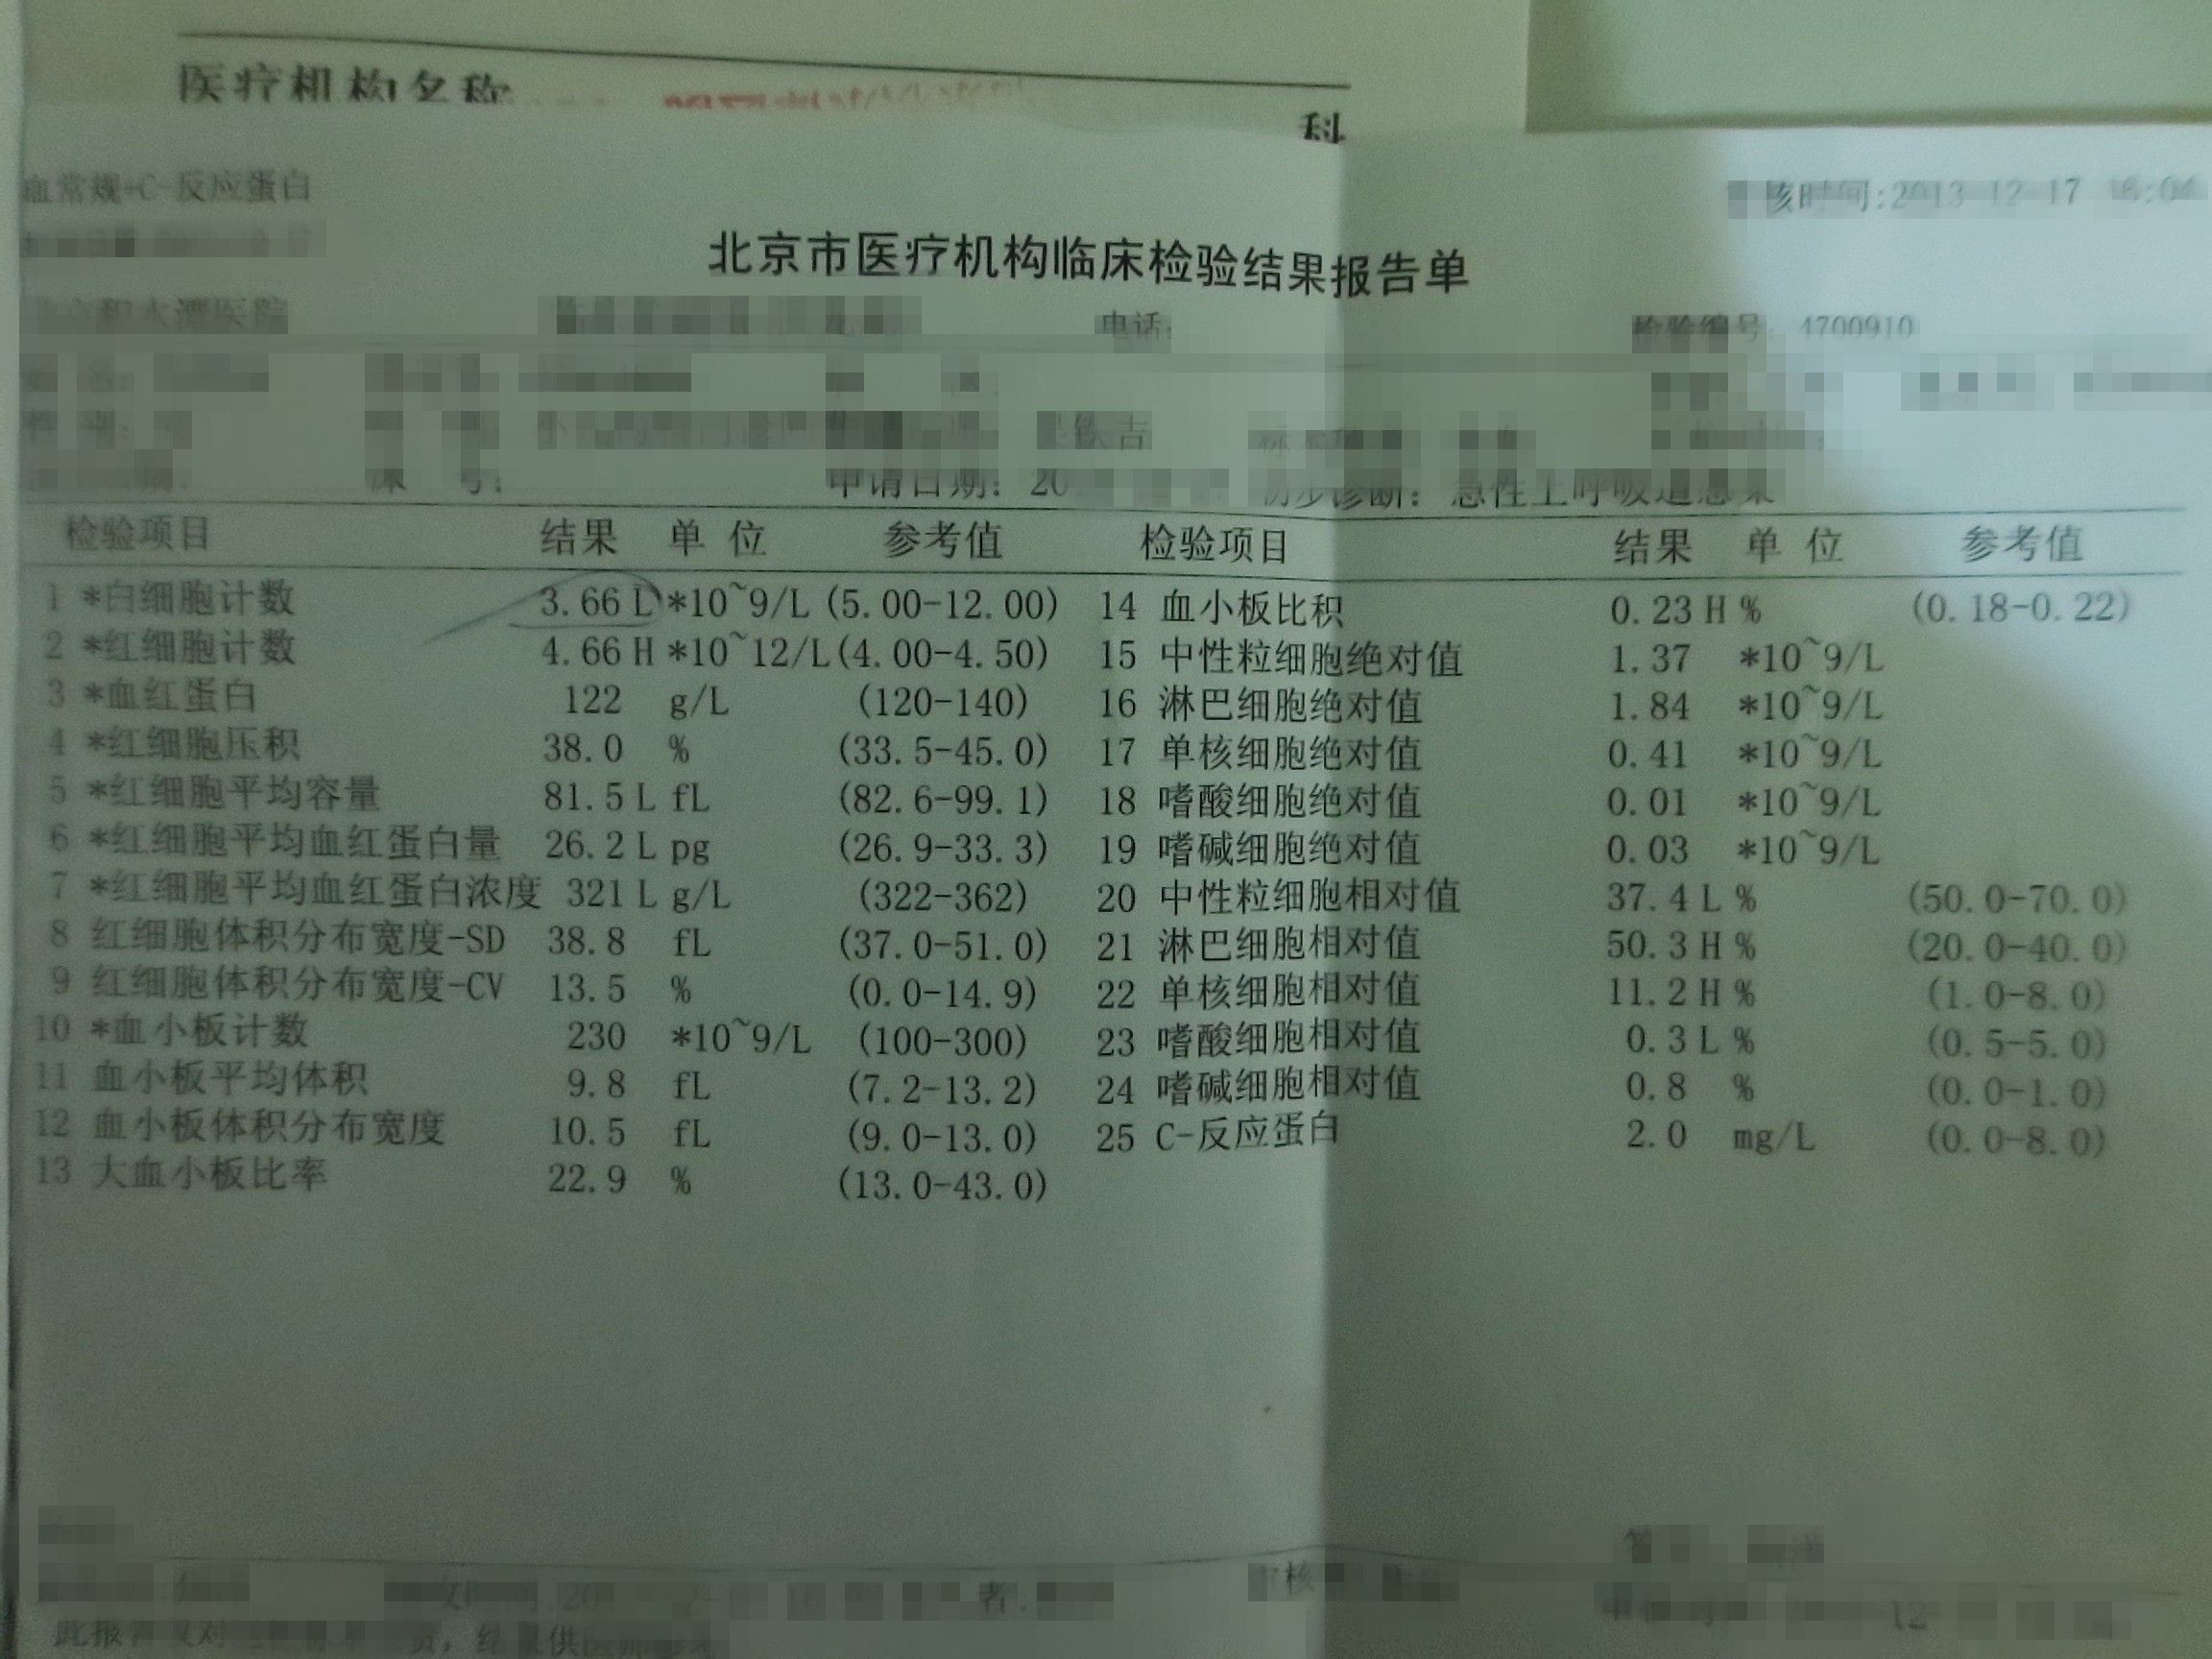 医疗机构名称
科
血常规+C-反应蛋白
核时间:2013-12-17 16:04
北京市医疗机构临床检验结果报告单
积水潭医院 电话: 检验编号: 4700910
申请日期: 20 初步诊断: 急性上呼吸道感染
检验项目 结果 单 位 参考值 检验项目 结果 单 位 参考值
1 *白细胞计数 3.66 L *10~9/L (5.00-12.00) 14 血小板比积 0.23 H % (0.18-0.22)
2 *红细胞计数 4.66 H *10~12/L (4.00-4.50) 15 中性粒细胞绝对值 1.37 *10~9/L
3 *血红蛋白 122 g/L (120-140) 16 淋巴细胞绝对值 1.84 *10~9/L
4 *红细胞压积 38.0 % (33.5-45.0) 17 单核细胞绝对值 0.41 *10~9/L
5 *红细胞平均容量 81.5 L fL (82.6-99.1) 18 嗜酸细胞绝对值 0.01 *10~9/L
6 *红细胞平均血红蛋白量 26.2 L pg (26.9-33.3) 19 嗜碱细胞绝对值 0.03 *10~9/L
7 *红细胞平均血红蛋白浓度 321 L g/L (322-362) 20 中性粒细胞相对值 37.4 L % (50.0-70.0)
8 红细胞体积分布宽度-SD 38.8 fL (37.0-51.0) 21 淋巴细胞相对值 50.3 H % (20.0-40.0)
9 红细胞体积分布宽度-CV 13.5 % (0.0-14.9) 22 单核细胞相对值 11.2 H % (1.0-8.0)
10 *血小板计数 230 *10~9/L (100-300) 23 嗜酸细胞相对值 0.3 L % (0.5-5.0)
11 血小板平均体积 9.8 fL (7.2-13.2) 24 嗜碱细胞相对值 0.8 % (0.0-1.0)
12 血小板体积分布宽度 10.5 fL (9.0-13.0) 25 C-反应蛋白 2.0 mg/L (0.0-8.0)
13 大血小板比率 22.9 % (13.0-43.0)